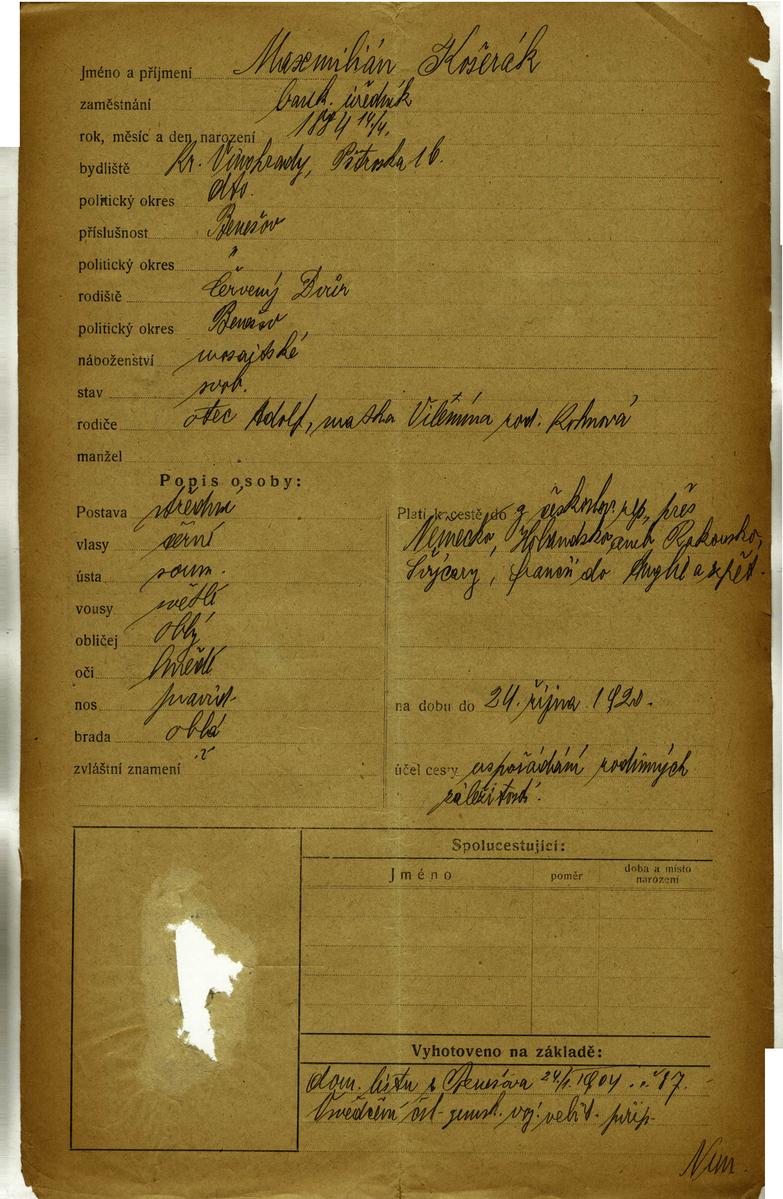 Jméno a příjmení Maxmilián Košerák
zaměstnání bank. úředník
rok, měsíc a den narození 1884 14/4.
bydliště Kr. Vinohrady, 16.
politický okres dto.
příslušnost Benešov
politický okres "
rodiště Červený Dvůr
politický okres Benešov
náboženství mosajské
stav svob.
rodiče otec Adolf, matka Vilemína rod. Kohnová
manžel
Popis osoby:
Postava střední
vlasy černí
ústa soum.
vousy světlí
obličej oblý
oči hnědí
nos pravid.
brada oblá
zvláštní znamení
Platí k cestě do z českoslov. rep. přes
Německo, Holandsko aneb Rakousko,
Švýcary, Francii do Anglie a zpět.
na dobu do 24. října 1920.
účel cesty uspořádání rodinných
záležitostí.
Spolucestující:
Jméno poměr doba a místo narození
Vyhotoveno na základě:
dom. listu z Benešova 24/1. 1904 č 87.
Osvědčení voj. velit. příp.